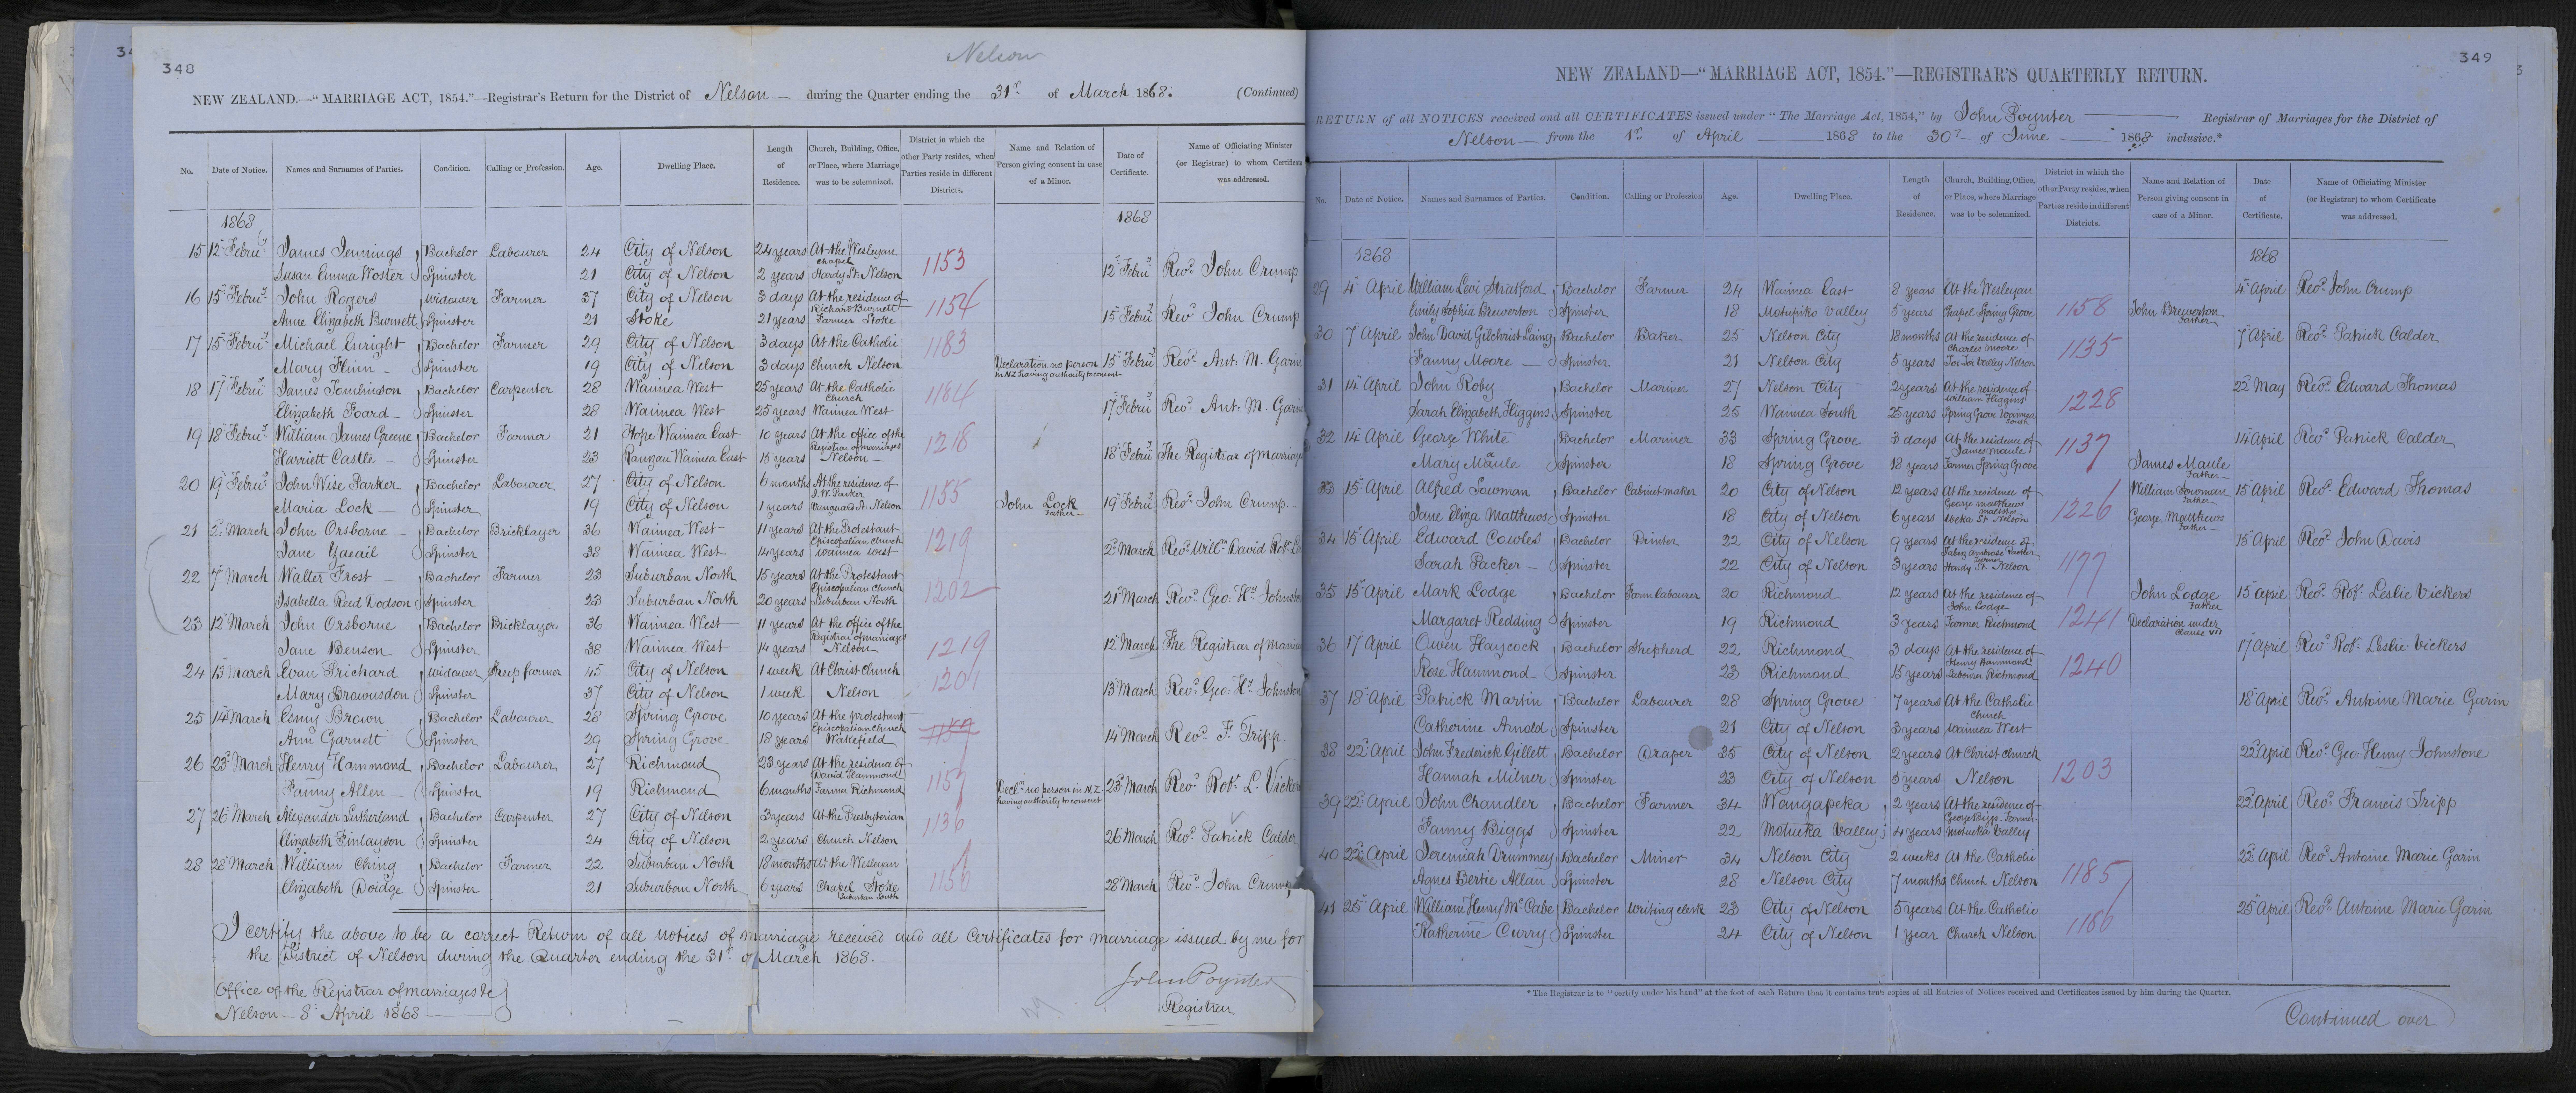 348
Nelson
NEW ZEALAND.—"MARRIAGE ACT, 1854."—Registrar's Return for the District of Nelson — during the Quarter ending the 31st of March 1868. (Continued)
No. Date of Notice. Names and Surnames of Parties. Condition. Calling or Profession. Age. Dwelling Place. Length of Residence. Church, Building, Office, or Place, where Marriage was to be solemnized. District in which the other Party resides, when Parties reside in different Districts. Name and Relation of Person giving consent in case of a Minor. Date of Certificate. Name of Officiating Minister (or Registrar) to whom Certificate was addressed.
1868 1868
15 12 Febru'y James Jennings Bachelor Labourer 24 City of Nelson 24 years At the Wesleyan chapel 1153
Susan Emma Woster Spinster 21 City of Nelson 2 years Hardy St. Nelson 12 Febru'y Rev'd John Crump
16 15 Febru'y John Rogers Widower Farmer 37 City of Nelson 3 days At the residence of Richard Burnett 1154
Anne Elizabeth Burnett Spinster 21 Stoke 21 years Farmer Stoke 15 Febru'y Rev'd John Crump
17 15 Febru'y Michael Enright Bachelor Farmer 29 City of Nelson 3 days At the Catholic 1183
Mary Flinn — Spinster 19 City of Nelson 3 days Church Nelson Declaration no person in NZ having authority to consent 15 Febru'y Rev'd Ant. M. Garin
18 17 Febru'y James Tomlinson Bachelor Carpenter 28 Waimea West 25 years At the Catholic Church 1184
Elizabeth Foard — Spinster 28 Waimea West 25 years Waimea West 17 Febru'y Rev'd Ant: M. Garin
19 18 Febru'y William James Greene Bachelor Farmer 21 Hope Waimea East 10 years At the office of the Registrar of marriages 1218
Harriett Castle — Spinster 23 Ranzau Waimea East 15 years Nelson — 18 Febru'y The Registrar of marriage
20 19 Febru'y John Wise Parker Bachelor Labourer 27 City of Nelson 6 months At the residence of J. W. Parker 1155
Maria Lock — Spinster 19 City of Nelson 1 years Vanguard St. Nelson John Lock Father — 19 Febru'y Rev'd John Crump
21 2d March John Orsborne — Bachelor Bricklayer 36 Waimea West 11 years At the Protestant Episcopalian church 1219
Jane Spinster 38 Waimea West 14 years Waimea West 2d March Rev'd Will'm David Rob't
22 7 March Walter Frost — Bachelor Farmer 23 Suburban North 15 years At the Protestant Episcopalian Church 1202
Isabella Reed Dodson Spinster 23 Suburban North 20 years Suburban North 21 March Rev'd Geo: H'y Johnston
23 12 March John Orsborne Bachelor Bricklayer 36 Waimea West 11 years At the office of the Registrar of marriages 1219
Jane Benson Spinster 38 Waimea West 14 years Nelson 12 March The Registrar of Marria
24 13 March Evan Prichard Widower Sheep farmer 45 City of Nelson 1 week At Christ Church 1201
Mary Brownsdon Spinster 37 City of Nelson 1 week Nelson 13 March Rev'd Geo: H'y Johnston
25 14 March Esny Brown Bachelor Labourer 28 Spring Grove 10 years At the protestant Episcopalian Church
Ann Garnett Spinster 29 Spring Grove 18 years Wakefield 14 March Rev'd F. Tripp.
26 23 March Henry Hammond Bachelor Labourer 27 Richmond 23 years At the residence of David Hammond 1157
Fanny Allen — Spinster 19 Richmond 6 months Farmer Richmond Decl'n no person in N.Z. having authority to consent 23 March Rev'd Rob't L. Vickers
27 26 March Alexander Sutherland Bachelor Carpenter 27 City of Nelson 3 years At the Presbyterian 1136
Elizabeth Finlayson Spinster 24 City of Nelson 2 years Church Nelson 26 March Rev'd Patrick Calder
28 28 March William Ching Bachelor Farmer 22 Suburban North 18 months At the Wesleyan 1156
Elizabeth Doidge Spinster 21 Suburban North 6 years Chapel Stoke Suburban South 28 March Rev'd John Crump
I certify the above to be a correct Return of all notices of marriage received and all Certificates for marriage issued by me for
the District of Nelson during the Quarter ending the 31st of March 1868.
John Poynter
Registrar
Office of the Registrar of marriages &c
Nelson — 8 April 1868
349
NEW ZEALAND—"MARRIAGE ACT, 1854."—REGISTRAR'S QUARTERLY RETURN.
RETURN of all NOTICES received and all CERTIFICATES issued under "The Marriage Act, 1854," by John Poynter Registrar of Marriages for the District of
Nelson — from the 1st of April 1868 to the 30th of June 1868 inclusive.*
No. Date of Notice. Names and Surnames of Parties. Condition. Calling or Profession Age. Dwelling Place. Length of Residence. Church, Building, Office, or Place, where Marriage was to be solemnized. District in which the other Party resides, when Parties reside in different Districts. Name and Relation of Person giving consent in case of a Minor. Date of Certificate. Name of Officiating Minister (or Registrar) to whom Certificate was addressed.
1868 1868
29 4 April William Levi Stratford Bachelor Farmer 24 Waimea East 8 years At the Wesleyan 4 April Rev'd John Crump
Emily Sophia Brewerton Spinster 18 Motupiko Valley 5 years Chapel Spring Grove 1158 John Brewerton Father
30 7 April John David Gilchrist Laing Bachelor Baker 25 Nelson City 18 months At the residence of Charles Moore 1135 7 April Rev'd Patrick Calder
Fanny Moore — Spinster 21 Nelson City 5 years Toi Toi Valley Nelson
31 14 April John Roby Bachelor Mariner 27 Nelson City 2 years At the residence of William Higgins 1228 22 May Rev'd Edward Thomas
Sarah Elizabeth Higgins Spinster 25 Waimea South 25 years Spring Grove Waimea South
32 14 April George White Bachelor Mariner 33 Spring Grove 3 days At the residence of James Maule 1137 14 April Rev'd Patrick Calder
Mary Maule Spinster 18 Spring Grove 18 years Farmer Spring Grove James Maule Father —
33 15 April Alfred Sowman Bachelor Cabinet maker 20 City of Nelson 12 years At the residence of George Matthews maltster 1226 William Sowman Father 15 April Rev'd Edward Thomas
Jane Eliza Matthews Spinster 18 City of Nelson 6 years Weka St. Nelson George Matthews Father —
34 15 April Edward Cowles Bachelor Printer 22 City of Nelson 9 years At the residence of Faber Ambrose Packer turner 1177 15 April Rev'd John Davis
Sarah Packer — Spinster 22 City of Nelson 3 years Hardy St. Nelson
35 15 April Mark Lodge Bachelor Farm Labourer 20 Richmond 12 years At the residence of John Lodge 1241 John Lodge Father 15 April Rev'd Rob't Leslie Vickers
Margaret Redding Spinster 19 Richmond 3 years Farmer Richmond Declaration under clause VII
36 17 April Owen Haycock Bachelor Shepherd 22 Richmond 3 days At the residence of Henry Hammond 1240 17 April Rev'd Rob't Leslie Vickers
Rose Hammond Spinster 23 Richmond 15 years Labourer Richmond
37 18 April Patrick Martin Bachelor Labourer 28 Spring Grove 7 years At the Catholic Church 18 April Rev'd Antoine Marie Garin
Catherine Arnold Spinster 21 City of Nelson 3 years Waimea West
38 22 April John Frederick Gillett Bachelor Draper 35 City of Nelson 2 years At Christ Church 22 April Rev'd Geo Henry Johnstone
Hannah Milner Spinster 23 City of Nelson 5 years Nelson 1203
39 22 April John Chandler Bachelor Farmer 34 Wangapeka 2 years At the residence of George Biggs Farmer 22 April Rev'd Francis Tripp
Fanny Biggs Spinster 22 Motueka Valley 4 years Motueka Valley
40 22 April Jeremiah Drummey Bachelor Miner 34 Nelson City 2 weeks At the Catholic 1185 22 April Rev'd Antoine Marie Garin
Agnes Bertie Allan Spinster 28 Nelson City 7 months Church Nelson
41 25 April William Henry McCabe Bachelor Writing clerk 23 City of Nelson 5 years At the Catholic 1186 25 April Rev'd Antoine Marie Garin
Katherine Curry Spinster 24 City of Nelson 1 year Church Nelson
*The Registrar is to "certify under his hand" at the foot of each Return that it contains true copies of all Entries of Notices received and Certificates issued by him during the Quarter.
Continued over